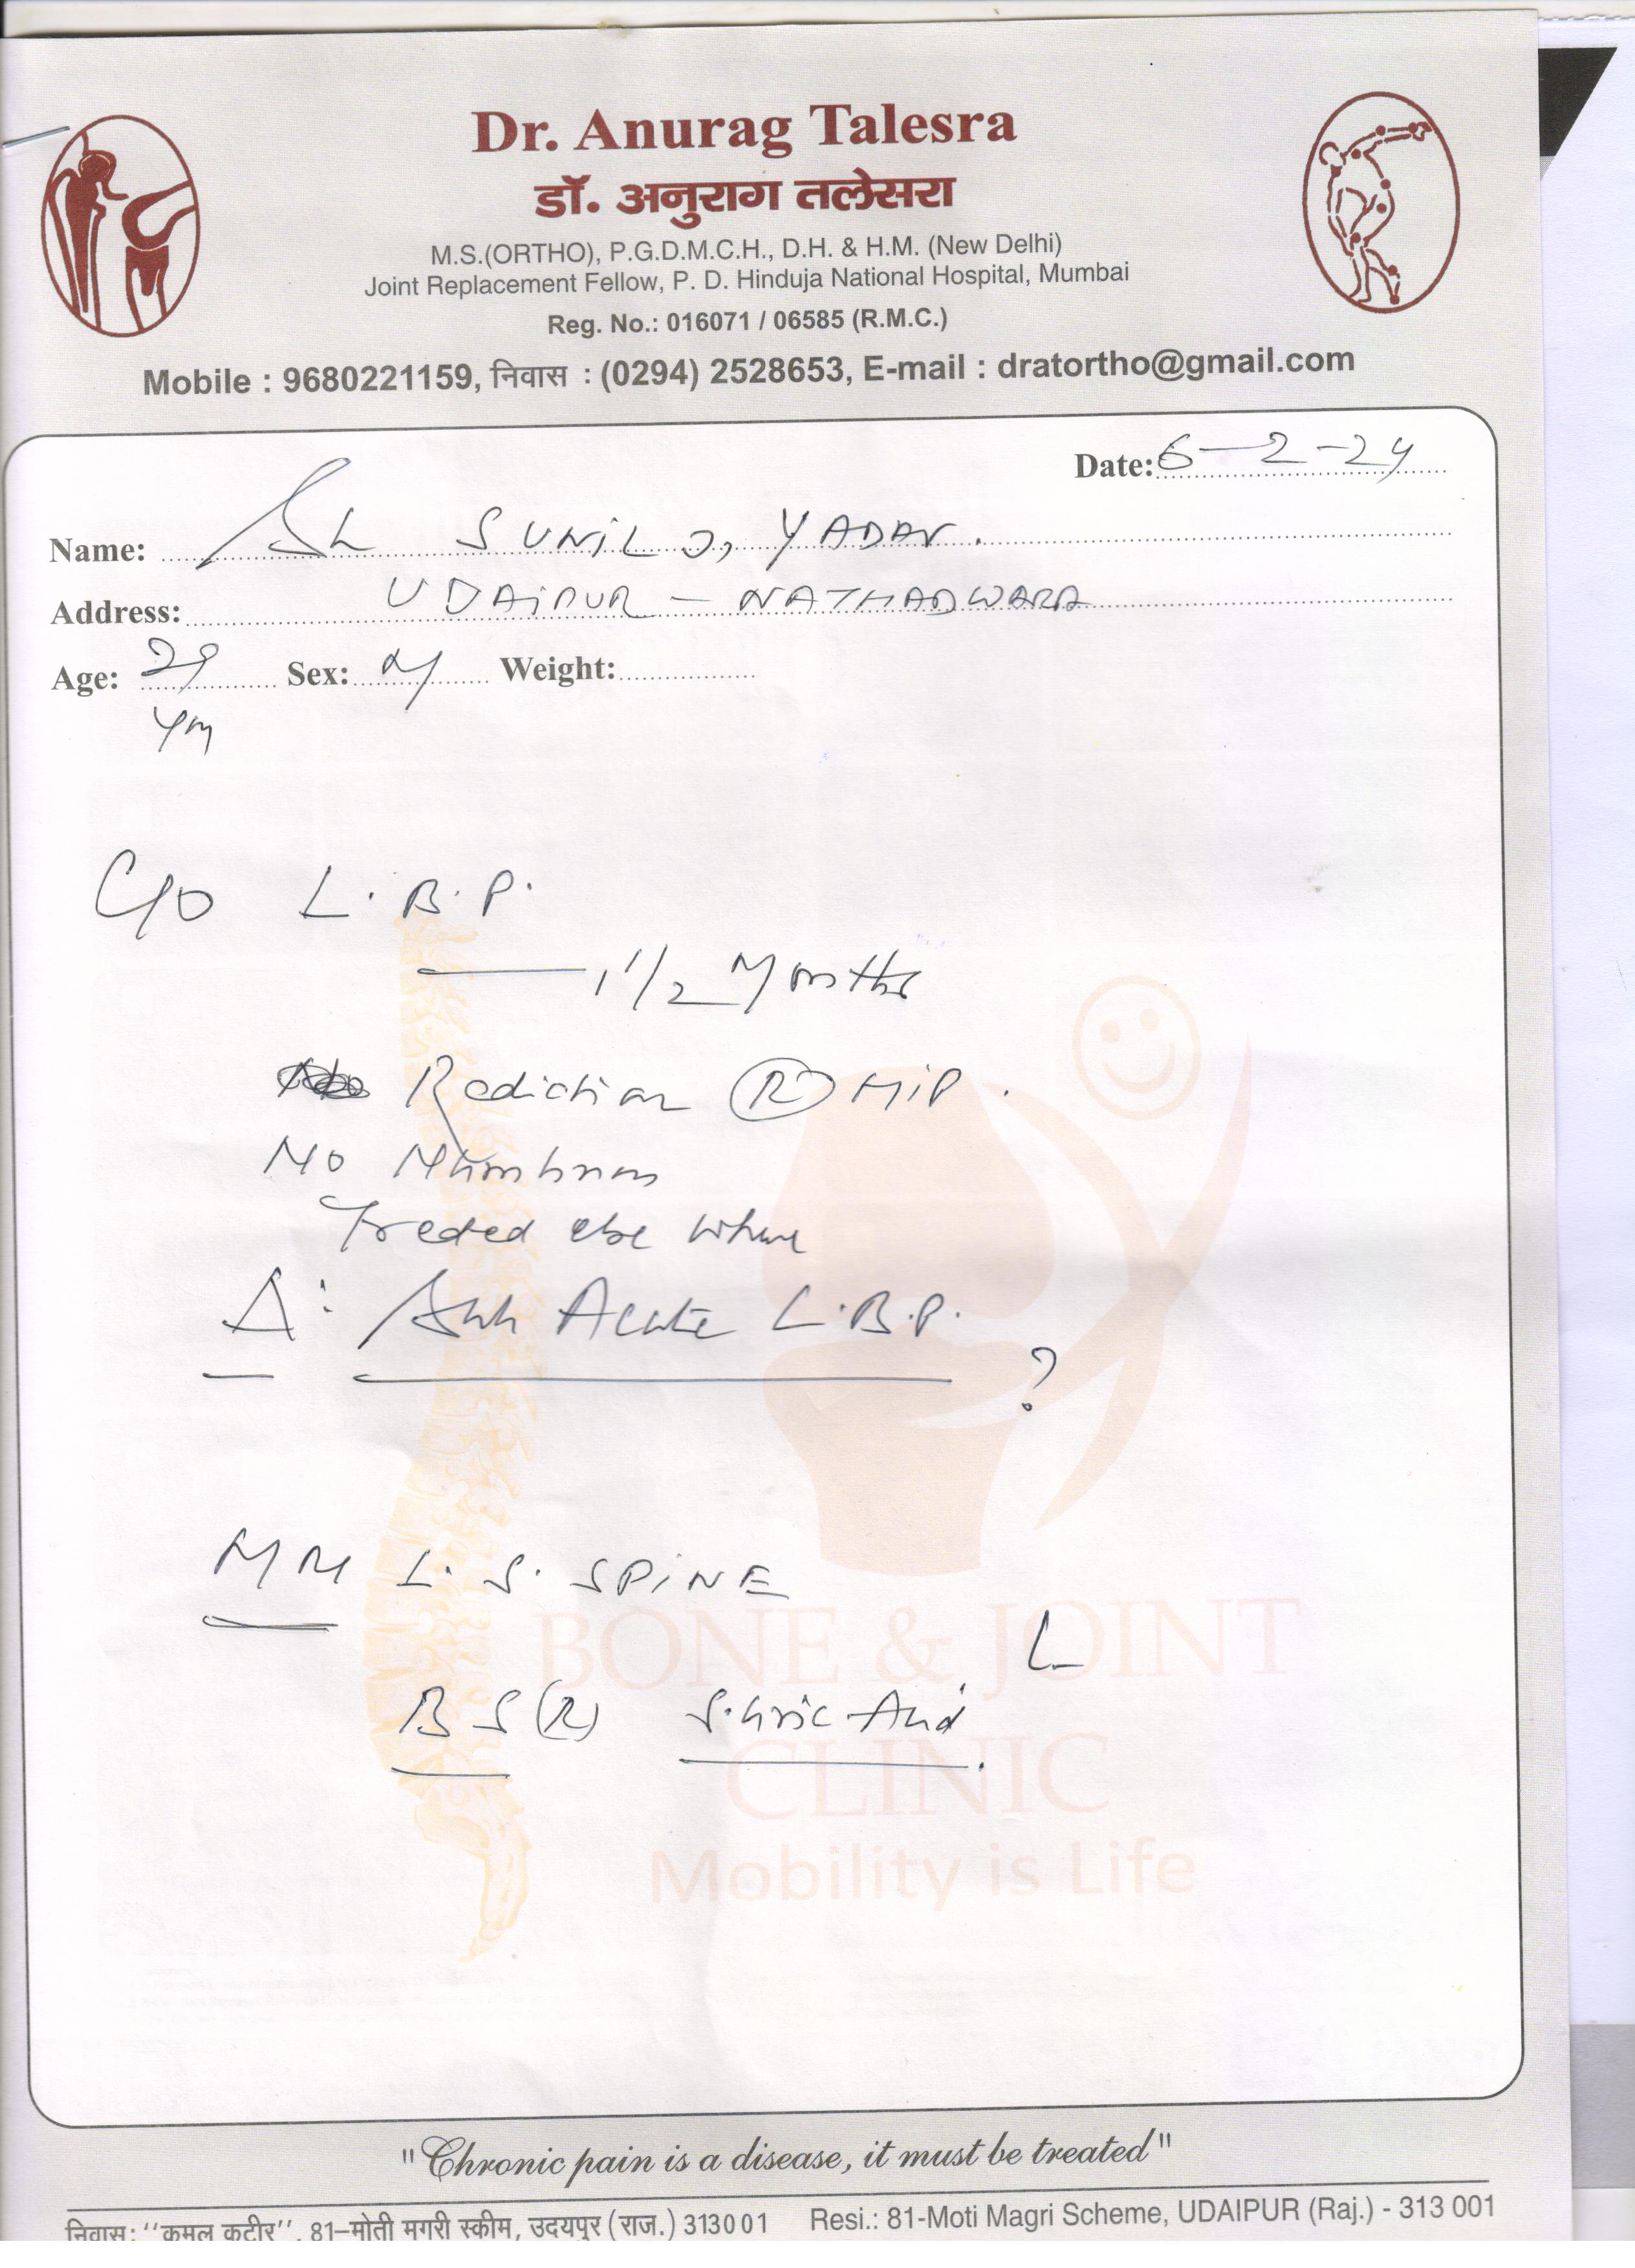 Dr. Anurag Talesra
डॉ. अनुराग तलेसरा
M.S.(ORTHO), P.G.D.M.C.H., D.H. & H.M. (New Delhi)
Joint Replacement Fellow, P. D. Hinduja National Hospital, Mumbai
Reg. No.: 016071 / 06585 (R.M.C.)
Mobile : 9680221159, निवास : (0294) 2528653, E-mail : dratortho@gmail.com
Date: 6-2-24
Name: Sh SUNIL J, YADAV.
Address: UDAIPUR - NATHADWARA
Age: 29 Sex: M Weight:
C/o L.B.P.
1 1/2 Months
Radiation (R) HIP.
No Numbness
Treated else where
Δ: Acute L.B.P. ?
L. S. SPINE
L
BS(R) S. Uric Acid.
BONE & JOINT
CLINIC
Mobility is Life
"Chronic pain is a disease, it must be treated"
निवास: ''कमल कुटीर'', 81-मोती मगरी स्कीम, उदयपुर (राज.) 313001 Resi.: 81-Moti Magri Scheme, UDAIPUR (Raj.) - 313 001